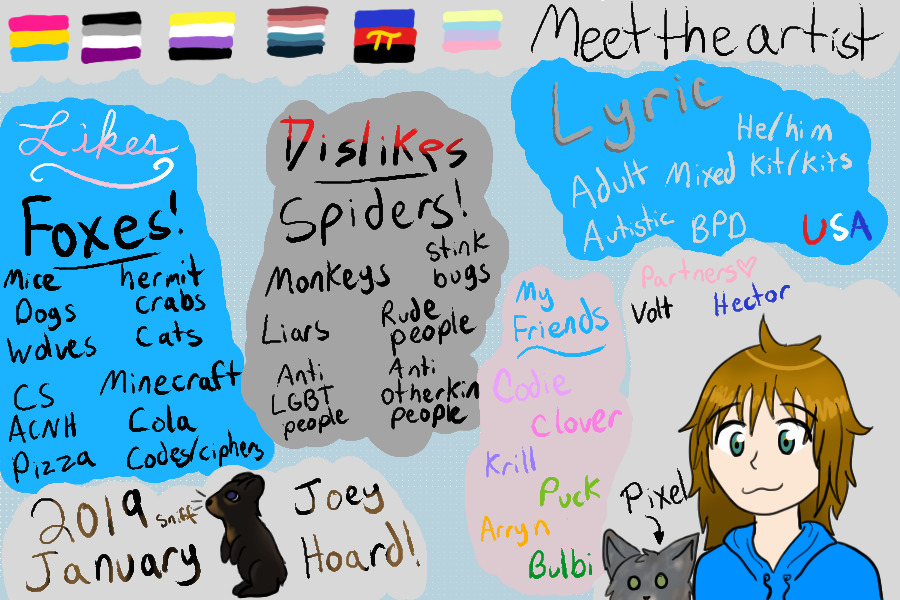 π
Meet the artist
Likes
Foxes!
Mice
hermit
crabs
Dogs
Cats
Wolves
CS
Minecraft
ACNH
Cola
Pizza
Codes/ciphers
Dislikes
Spiders!
Monkeys
stink
bugs
Liars
Rude
people
Anti
LGBT
people
Anti
otherkin
people
Lyric
He/him
Adult
Mixed
Kit/Kits
Autistic
BPD
USA
My
Friends
Codie
Clover
Krill
Puck
Arryn
Bulbi
Partners♡
Volt
Hector
Pixel
2019
January
Sniff
Joey
Hoard!